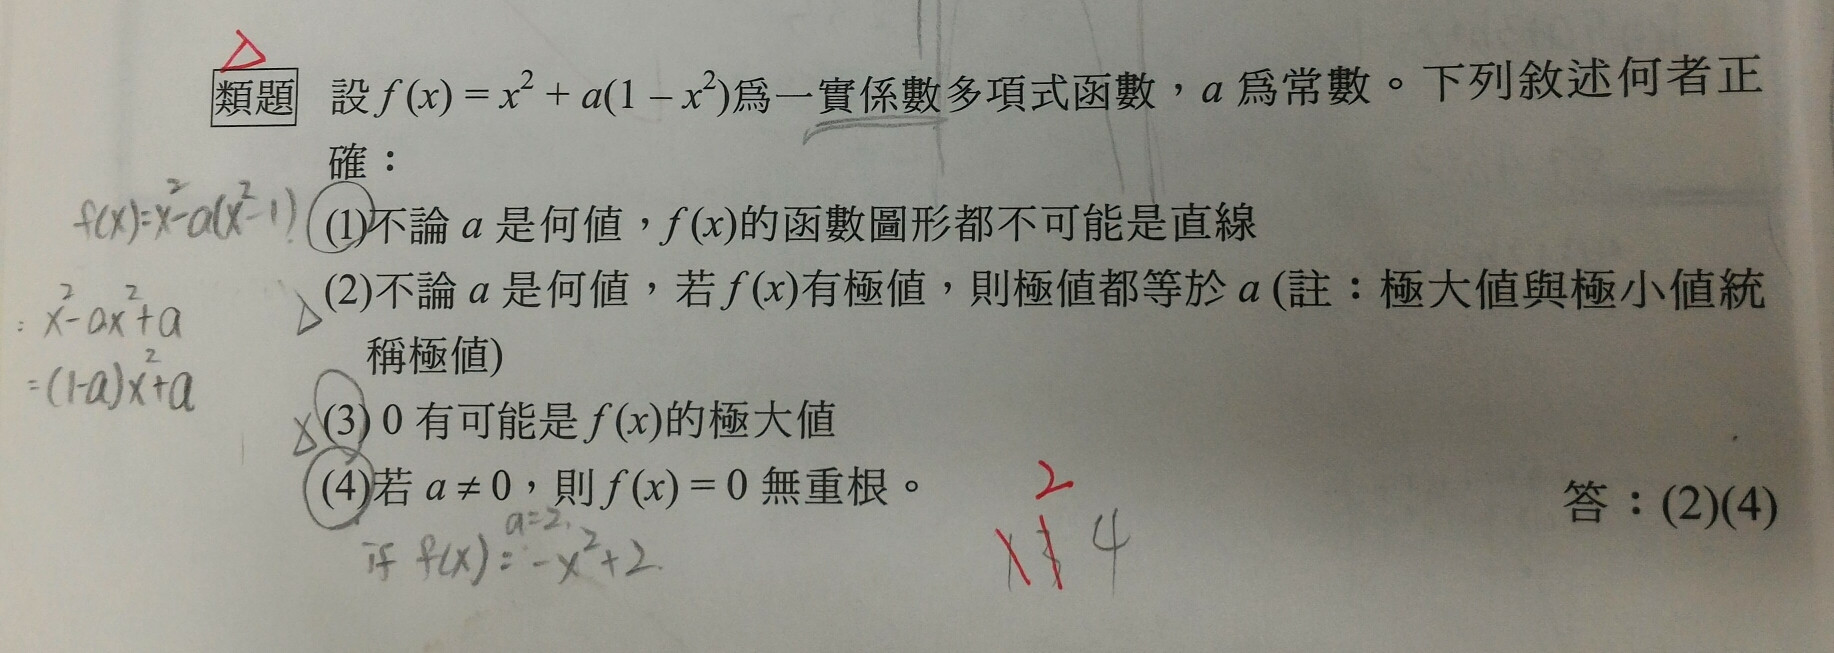 類題 設 f (x) = x² + a(1 – x²)爲一實係數多項式函數，a 爲常數。下列敘述何者正
確：
f(x)=x²-a(x²-1) (1)不論 a 是何値，f (x)的函數圖形都不可能是直線
(2)不論 a 是何値，若 f (x)有極値，則極値都等於 a (註：極大値與極小値統
= x²-ax²+a
稱極値)
=(1-a)x²+a
(3) 0 有可能是 f (x)的極大値
(4)若 a ≠ 0，則 f (x) = 0 無重根。
答：(2)(4)
a=2,
if f(x)= -x²+2.
2
4